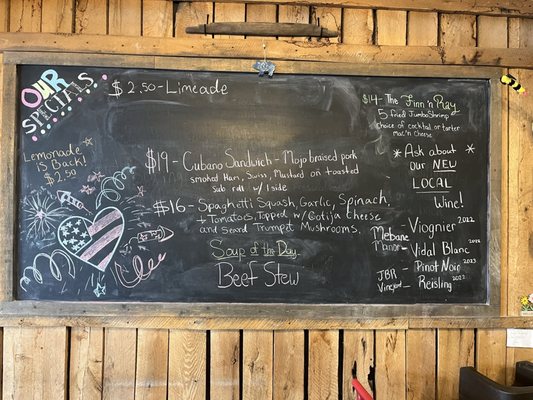 OUR
SPECIALS
Lemonade
Is Back!
$2.50
$2.50 - Limeade
$19 - Cubano Sandwich - Mojo braised pork
smoked Ham, Swiss, Mustard on toasted
Sub roll w/ 1 side
$16 - Spaghetti Squash, Garlic, Spinach,
+ Tomatoes, Topped w/ Cotija Cheese
and Seared Trumpet Mushrooms.
Soup of the Day
Beef Stew
$14 - The Finn 'n Ray
5 fried Jumbo Shrimp
choice of cocktail or tarter
mac'n cheese
* Ask about *
our NEW
LOCAL
Wine!
Mebane Manor -
Viognier 2022
Vidal Blanc
Pinot Noir 2023
JBR Vineyard - Reisling 2022